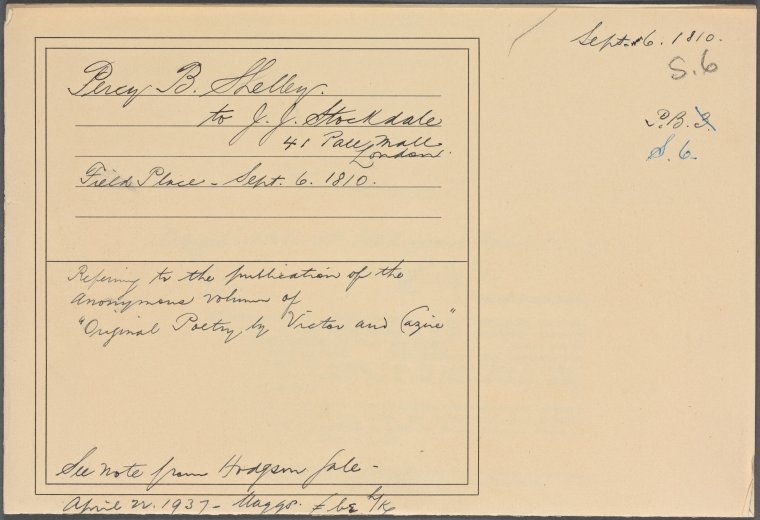 Sept. 6. 1810.
S.6
P.B.
S. 6.
Percy B. Shelley.
to J. J. Stockdale
41 Pall Mall
London.
Field Place - Sept. 6. 1810.
Refering to the publication of the
anonymous volume of
"Original Poetry by Victor and Cazire"
See note from Hodgson Sale -
April 22. 1937 - Maggs. £